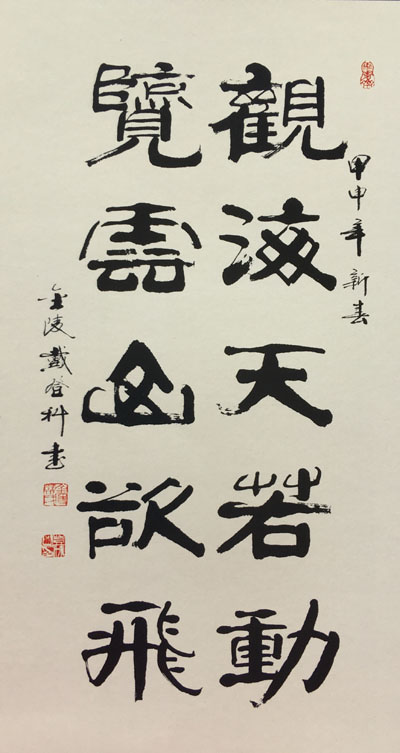 甲申年新春
觀海天若動
覽雲山欲飛
金陵戴登科書